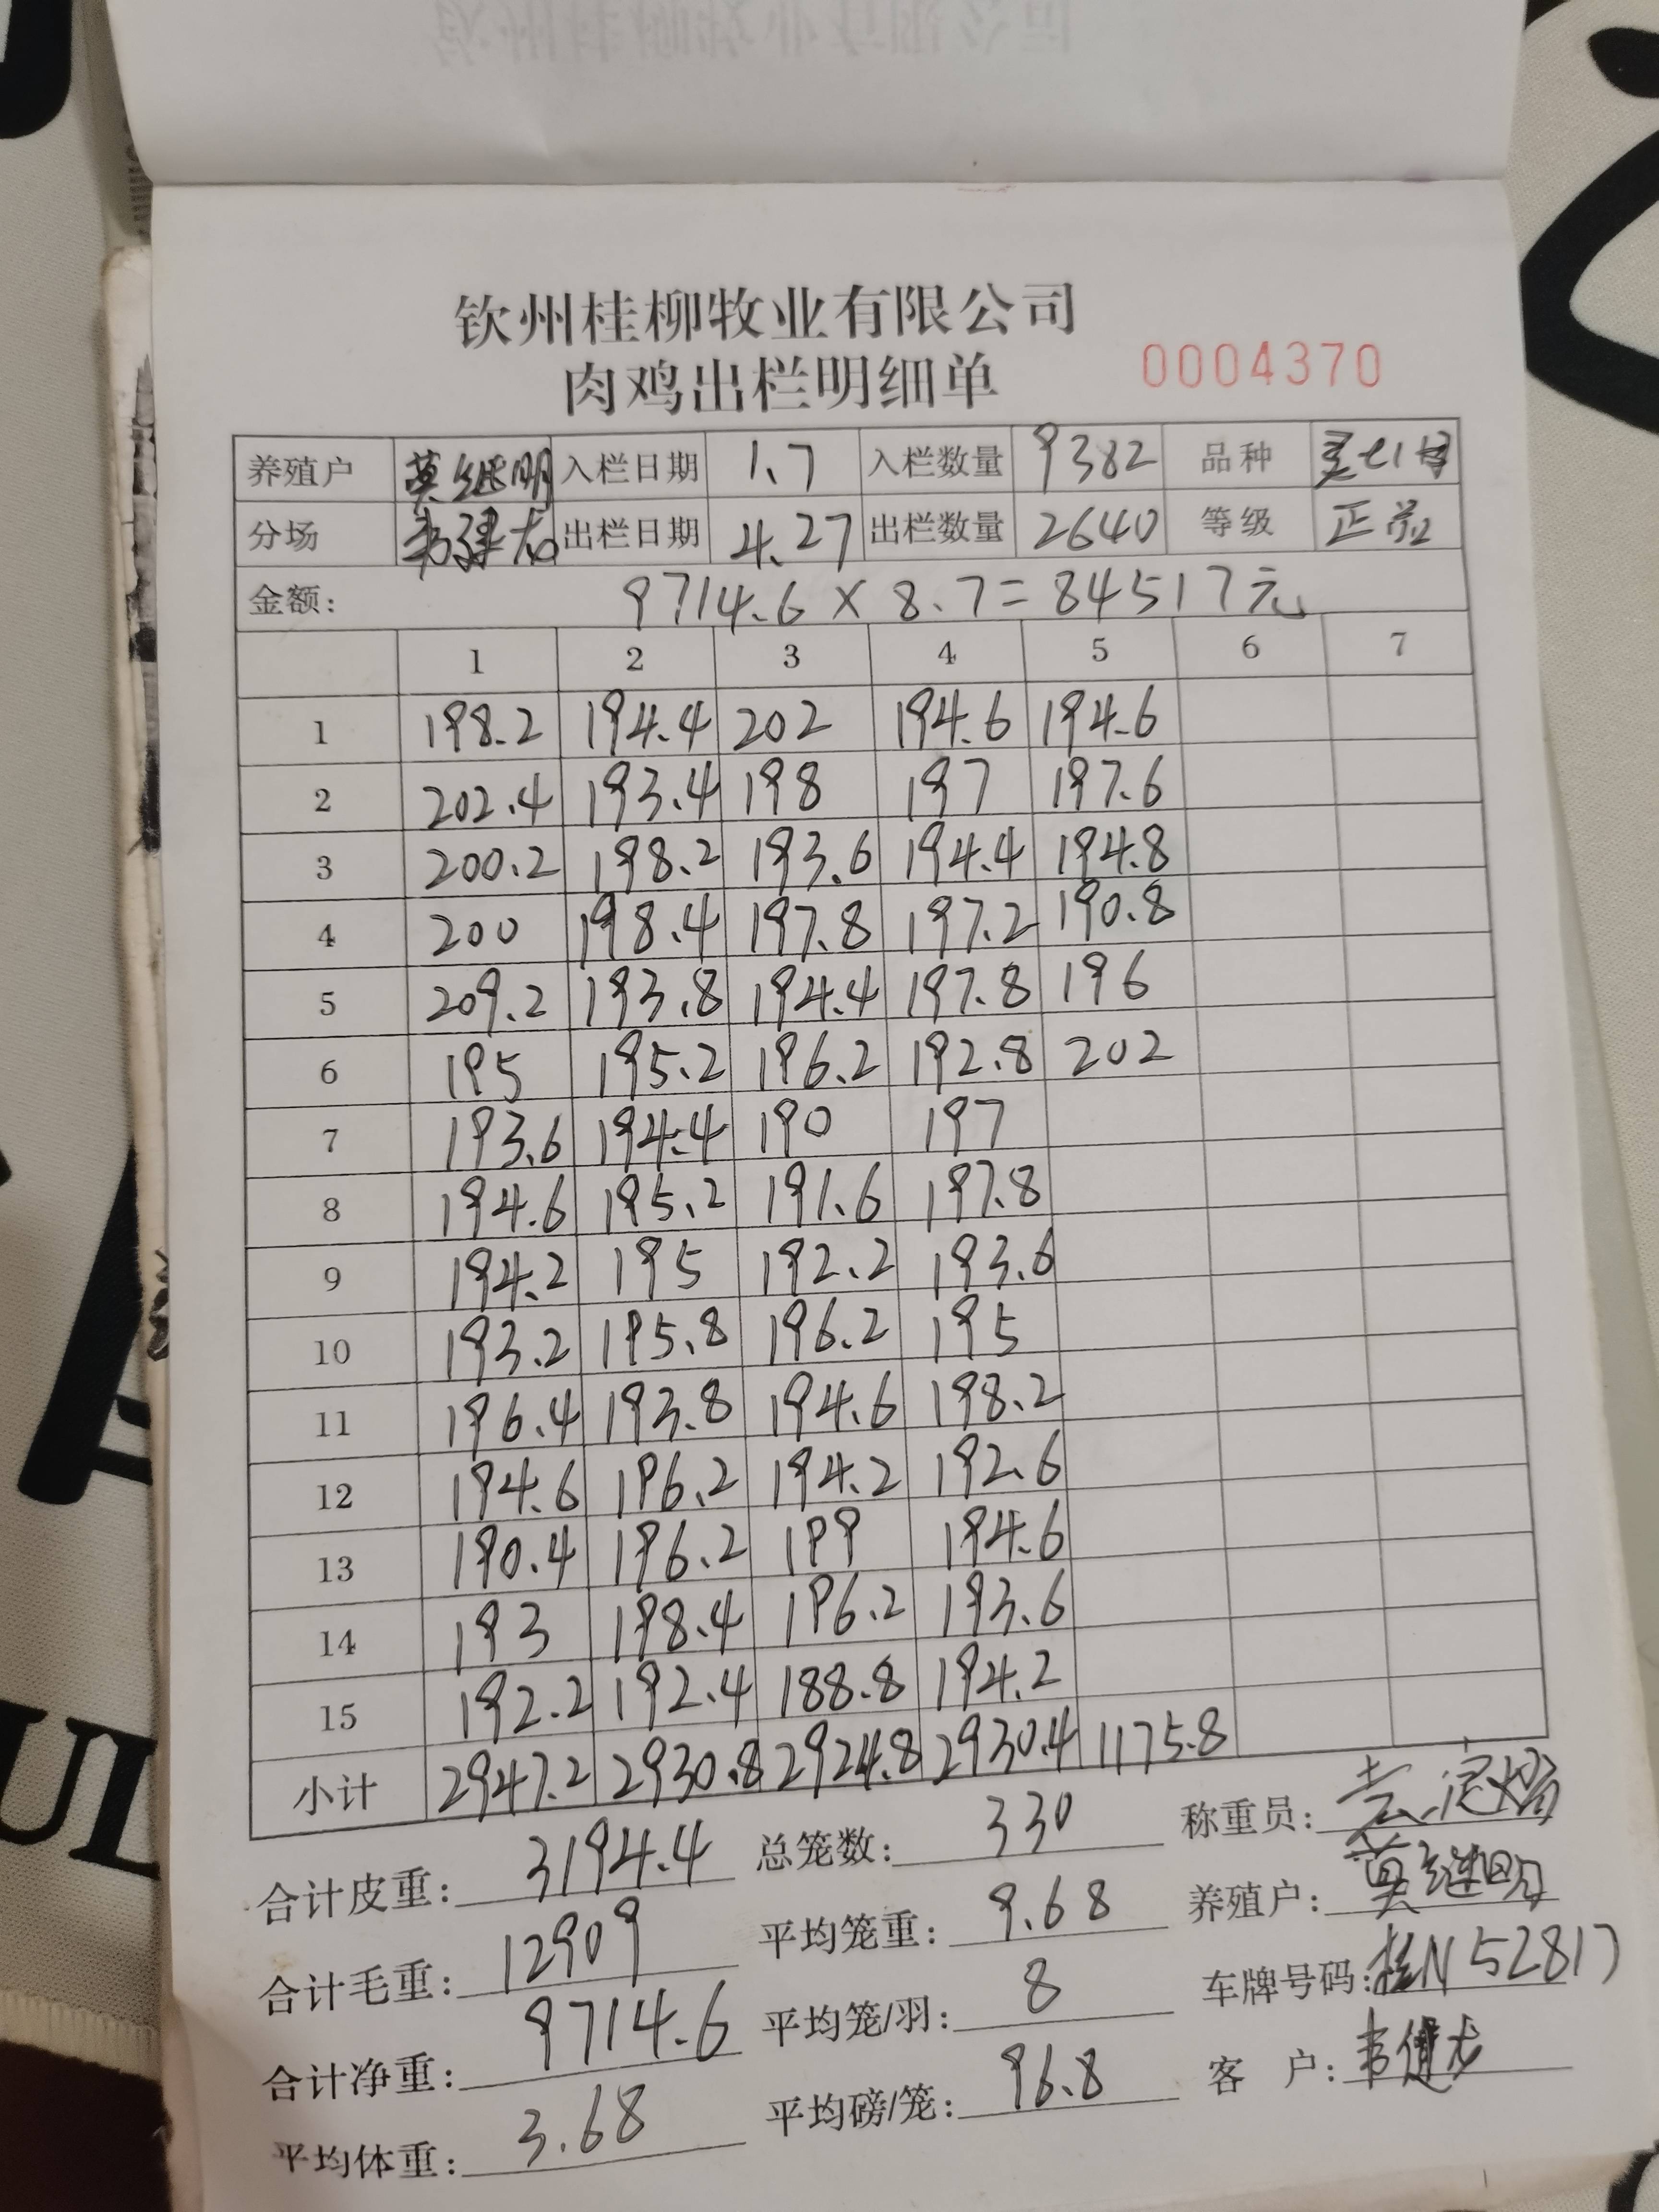 钦州桂柳牧业有限公司
肉鸡出栏明细单 0004370
养殖户 莫继明 入栏日期 1.7 入栏数量 9382 品种
分场 出栏日期 4.27 出栏数量 2640 等级 正品
金额: 9714.6 × 8.7 = 84517元
1 2 3 4 5 6 7
1 198.2 194.4 202 194.6 194.6
2 202.4 193.4 198 197 197.6
3 200.2 198.2 193.6 194.4 194.8
4 200 198.4 197.8 197.2 190.8
5 209.2 193.8 194.4 197.8 196
6 195 195.2 196.2 192.8 202
7 193.6 194.4 190 197
8 194.6 195.2 191.6 197.8
9 194.2 195 192.2 193.6
10 193.2 195.8 196.2 195
11 196.4 193.8 194.6 198.2
12 194.6 196.2 194.2 192.6
13 190.4 196.2 199 194.6
14 193 198.4 196.2 193.6
15 192.2 192.4 188.8 194.2
小计 2947.2 2930.8 2924.8 2930.4 1175.8
合计皮重: 3194.4 总笼数: 330 称重员:
合计毛重: 12909 平均笼重: 9.68 养殖户: 莫继明
合计净重: 9714.6 平均笼/羽: 8 车牌号码: 桂N52817
平均体重: 3.68 平均磅/笼: 96.8 客 户: